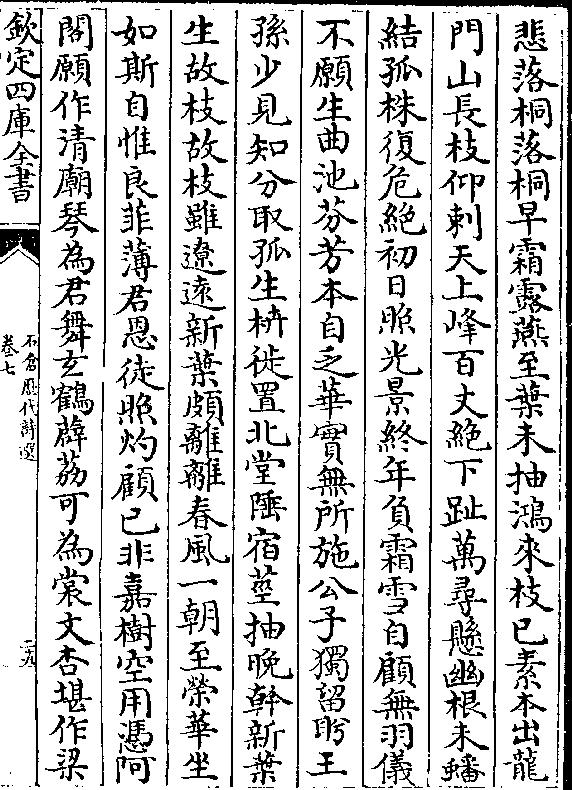 悲落桐落桐早霜露燕至葉未抽鴻來枝已素本出龍
門山長枝仰刺天上峰百丈絶下趾萬尋懸幽根未蟠
結孤株復危絶初日照光景終年負霜雪自顧無羽儀
不願生曲池芬芳本自乏華實無所施公子獨留眄王
孫少見知分取孤生枿徙置北堂陲宿莖抽晚幹新葉
生故枝故枝雖遼逺新葉頗離離春風一朝至榮華坐
如斯自惟良菲薄君恩徒照灼顧已非嘉樹空用憑阿
閣願作清廟琴為君舞玄鶴薜荔可為裳文杏堪作梁
欽定四庫全書
石倉厯代詩選
卷七
二九